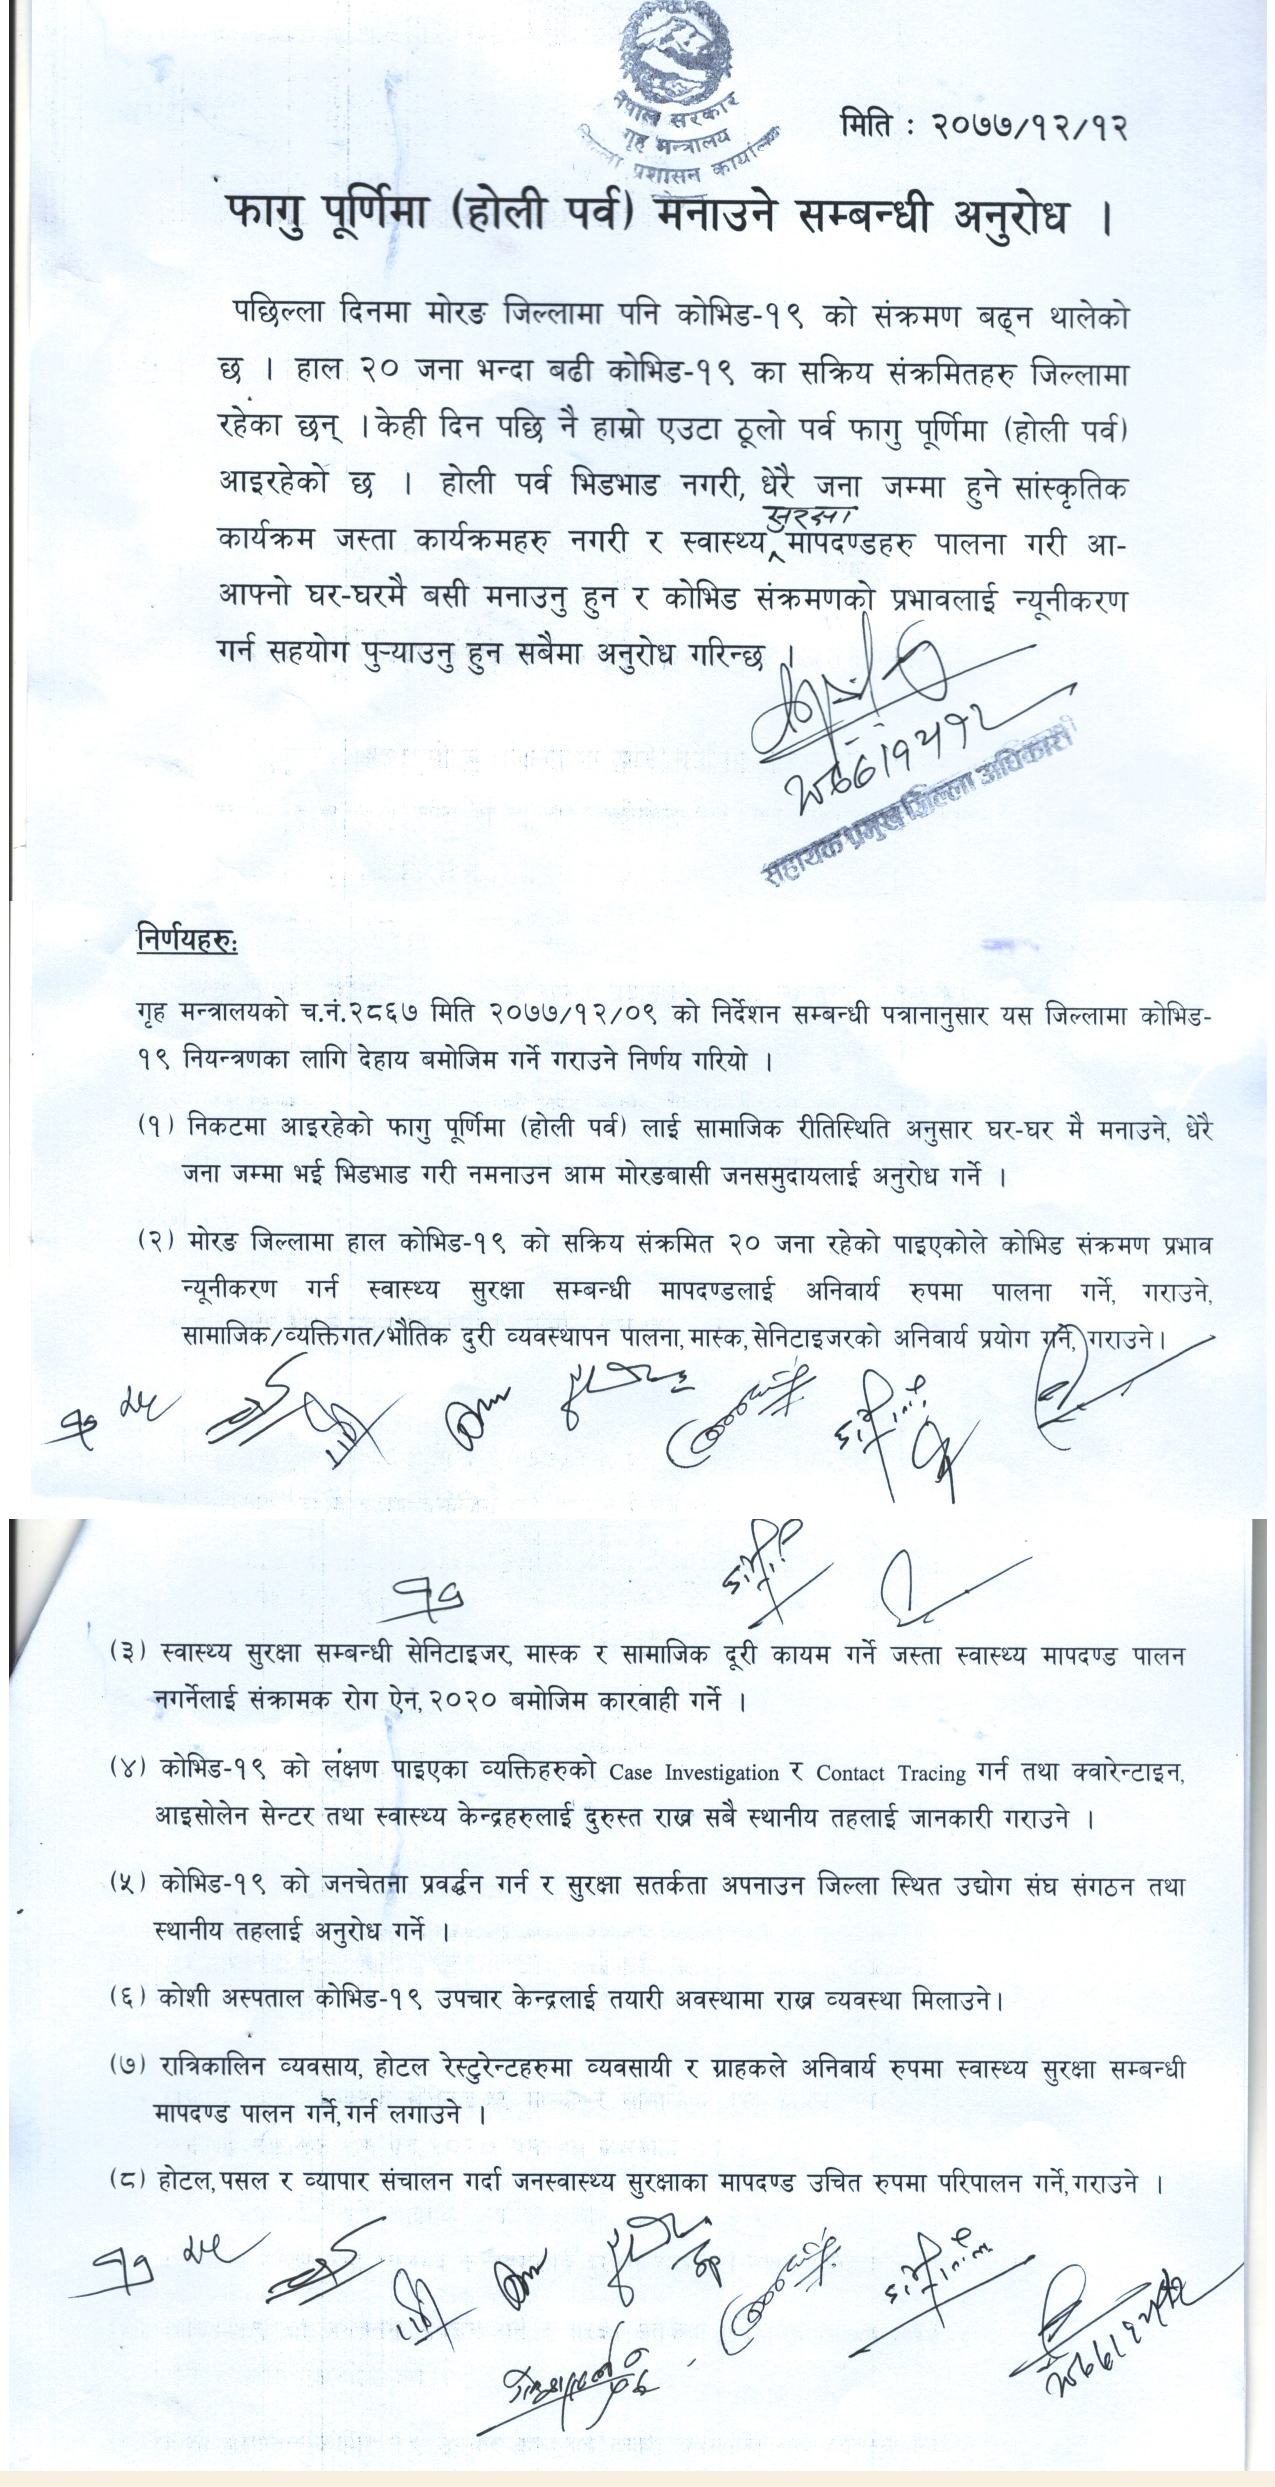 नेपाल सरकार
गृह मन्त्रालय
जिल्ला प्रशासन कार्यालय
मिति : २०७७/१२/१२
फागु पूर्णिमा (होली पर्व) मनाउने सम्बन्धी अनुरोध ।
पछिल्ला दिनमा मोरङ जिल्लामा पनि कोभिड-१९ को संक्रमण बढ्न थालेको
छ । हाल २० जना भन्दा बढी कोभिड-१९ का सक्रिय संक्रमितहरु जिल्लामा
रहेका छन् । केही दिन पछि नै हाम्रो एउटा ठूलो पर्व फागु पूर्णिमा (होली पर्व)
आइरहेको छ । होली पर्व भिडभाड नगरी, धेरै जना जम्मा हुने सांस्कृतिक
सुरक्षा
कार्यक्रम जस्ता कार्यक्रमहरु नगरी र स्वास्थ्य मापदण्डहरु पालना गरी आ-
आफ्नो घर-घरमै बसी मनाउनु हुन र कोभिड संक्रमणको प्रभावलाई न्यूनीकरण
गर्न सहयोग पुर्‍याउनु हुन सबैमा अनुरोध गरिन्छ ।
सहायक प्रमुख जिल्ला अधिकारी
निर्णयहरुः
गृह मन्त्रालयको च.नं.२८६७ मिति २०७७/१२/०९ को निर्देशन सम्बन्धी पत्रानानुसार यस जिल्लामा कोभिड-
१९ नियन्त्रणका लागि देहाय बमोजिम गर्ने गराउने निर्णय गरियो ।
(१) निकटमा आइरहेको फागु पूर्णिमा (होली पर्व) लाई सामाजिक रीतिस्थिति अनुसार घर-घर मै मनाउने, धेरै
जना जम्मा भई भिडभाड गरी नमनाउन आम मोरङबासी जनसमुदायलाई अनुरोध गर्ने ।
(२) मोरङ जिल्लामा हाल कोभिड-१९ को सक्रिय संक्रमित २० जना रहेको पाइएकोले कोभिड संक्रमण प्रभाव
न्यूनीकरण गर्न स्वास्थ्य सुरक्षा सम्बन्धी मापदण्डलाई अनिवार्य रुपमा पालना गर्ने, गराउने,
सामाजिक/व्यक्तिगत/भौतिक दुरी व्यवस्थापन पालना, मास्क, सेनिटाइजरको अनिवार्य प्रयोग गर्ने, गराउने।
(३) स्वास्थ्य सुरक्षा सम्बन्धी सेनिटाइजर, मास्क र सामाजिक दूरी कायम गर्ने जस्ता स्वास्थ्य मापदण्ड पालन
नगर्नेलाई संक्रामक रोग ऐन, २०२० बमोजिम कारवाही गर्ने ।
(४) कोभिड-१९ को लंक्षण पाइएका व्यक्तिहरुको Case Investigation र Contact Tracing गर्न तथा क्वारेन्टाइन,
आइसोलेन सेन्टर तथा स्वास्थ्य केन्द्रहरुलाई दुरुस्त राख्न सबै स्थानीय तहलाई जानकारी गराउने ।
(५) कोभिड-१९ को जनचेतना प्रवर्द्धन गर्न र सुरक्षा सतर्कता अपनाउन जिल्ला स्थित उद्योग संघ संगठन तथा
स्थानीय तहलाई अनुरोध गर्ने ।
(६) कोशी अस्पताल कोभिड-१९ उपचार केन्द्रलाई तयारी अवस्थामा राख्न व्यवस्था मिलाउने।
(७) रात्रिकालिन व्यवसाय, होटल रेस्टुरेन्टहरुमा व्यवसायी र ग्राहकले अनिवार्य रुपमा स्वास्थ्य सुरक्षा सम्बन्धी
मापदण्ड पालन गर्ने, गर्न लगाउने ।
(८) होटल, पसल र व्यापार संचालन गर्दा जनस्वास्थ्य सुरक्षाका मापदण्ड उचित रुपमा परिपालन गर्ने, गराउने ।